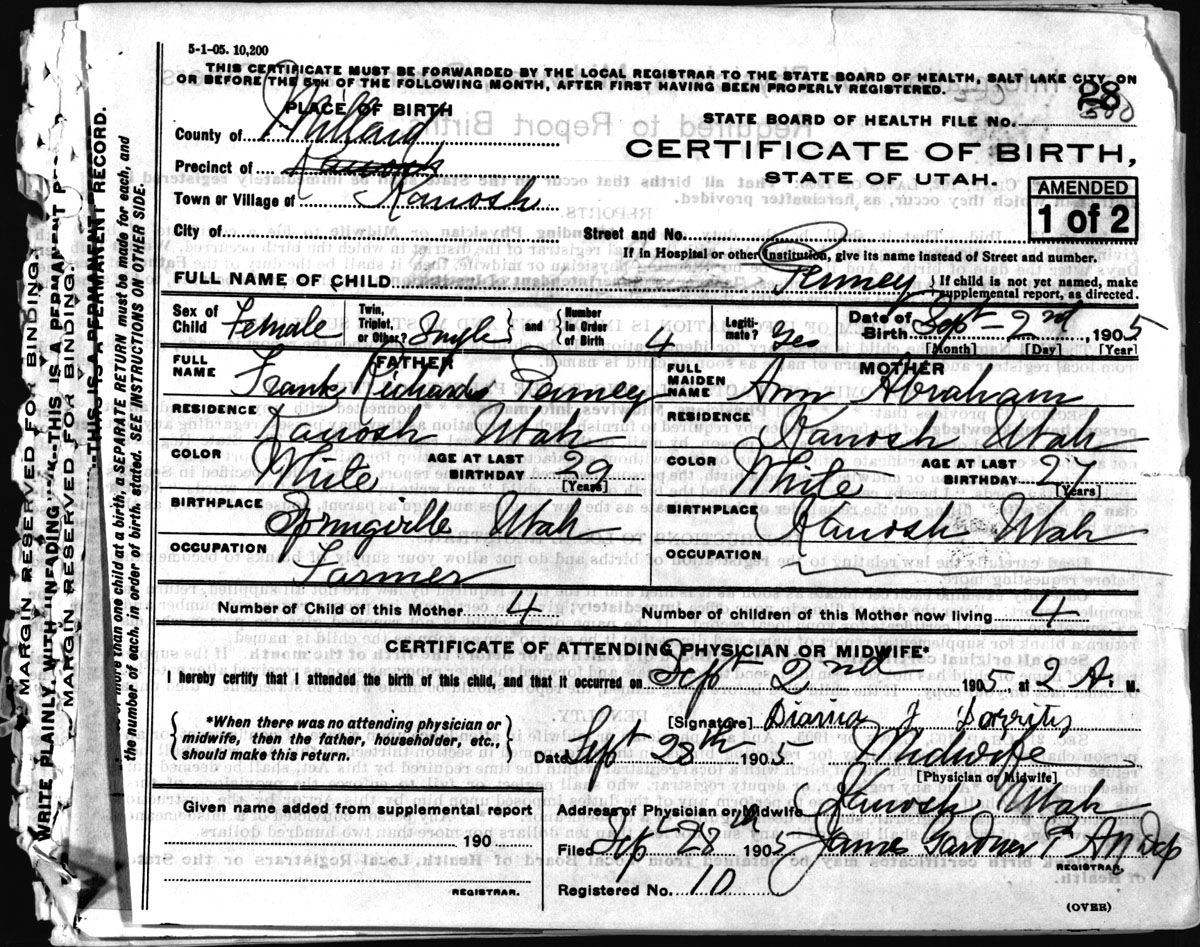 5-1-05. 10,200
THIS CERTIFICATE MUST BE FORWARDED BY THE LOCAL REGISTRAR TO THE STATE BOARD OF HEALTH, SALT LAKE CITY, ON
OR BEFORE THE 5TH OF THE FOLLOWING MONTH, AFTER FIRST HAVING BEEN PROPERLY REGISTERED.
28
PLACE OF BIRTH
STATE BOARD OF HEALTH FILE NO. 300
County of Millard
CERTIFICATE OF BIRTH,
Precinct of Kanosh
STATE OF UTAH.
Town or Village of Kanosh
AMENDED
1 of 2
City of
Street and No.
If in Hospital or other Institution, give its name instead of Street and number.
FULL NAME OF CHILD Penney } If child is not yet named, make
supplemental report, as directed.
Sex of Child Female
Twin, Triplet, or Other? Single } and { Number in Order of Birth 4
Legiti- mate? yes
Date of Birth Sept - 2nd 1905
[Month] [Day] [Year]
FATHER
FULL NAME Frank Richards Penney
RESIDENCE Kanosh Utah
COLOR White AGE AT LAST BIRTHDAY 29
[Years]
BIRTHPLACE Springville Utah
OCCUPATION Farmer
MOTHER
FULL MAIDEN NAME Ann Abraham
RESIDENCE Kanosh Utah
COLOR White AGE AT LAST BIRTHDAY 27
[Years]
BIRTHPLACE Kanosh Utah
OCCUPATION
Number of Child of this Mother 4 Number of children of this Mother now living 4
CERTIFICATE OF ATTENDING PHYSICIAN OR MIDWIFE*
I hereby certify that I attended the birth of this child, and that it occurred on Sept 2nd 1905 at 2 A. M.
{ *When there was no attending physician or
midwife, then the father, householder, etc.,
should make this return. }
[Signature] Diania J
Date Sept 28th 1905 Midwife
[Physician or Midwife]
Given name added from supplemental report
190
REGISTRAR.
Address of Physician or Midwife Kanosh Utah
Filed Sep 28th 1905 James Gardner Dep
REGISTRAR.
Registered No. 10
(OVER)
MARGIN RESERVED FOR BINDING.
WRITE PLAINLY WITH UNFADING
THIS IS A PERMANENT
MARGIN RESERVED FOR BINDING.
THIS IS A PERMANENT RECORD.
more than one child at a birth, a SEPARATE RETURN must be made for each, and
the number of each, in order of birth, stated. SEE INSTRUCTIONS ON OTHER SIDE.